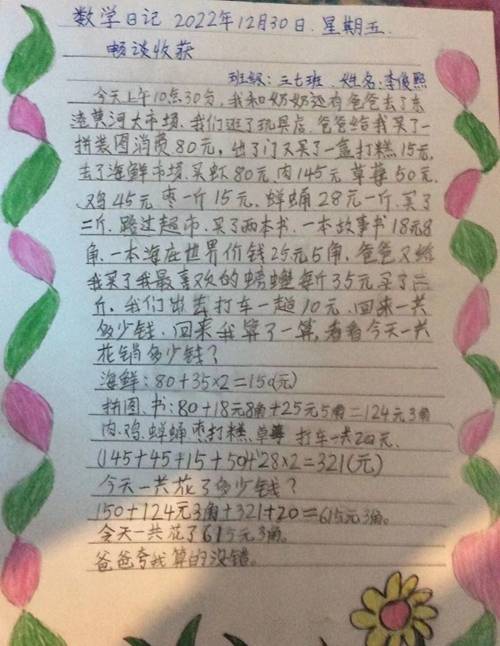 数学日记 2022年12月30日.星期五.
畅谈收获
班级:三七班.姓名:李俊熙
今天上午10点30分,我和奶奶还有爸爸去了东
渣黄河大市场.我们逛了玩具店.爸爸给我买了一
拼装图消费80元,出了门又买了一盒打糕15元,
去了海鲜市场.买虾80元,肉145元.草莓50元.
鸡45元.枣一斤15元.蝉蛹28元一斤.买了
二斤.路过超市.买了两本书.一本故事书18元8
角.一本海底世界价钱25元5角.爸爸又给
我买了我最喜欢的螃蟹每斤35元买了二
斤.我们出去打车一趟10元.回来一共
多少钱.回来我算了一算,看看今天一共
花销多少钱?
海鲜:80+35×2=150(元)
拼图.书:80+18元8角+25元5角=124元3角
肉.鸡.蝉蛹枣打糕.草莓 打车一共20元.
(145+45+15+50+28×2=321(元)
今天一共花了多少钱?
150+124元3角+321+20=615元3角.
今天一共花了615元3角.
爸爸夸我算的没错.